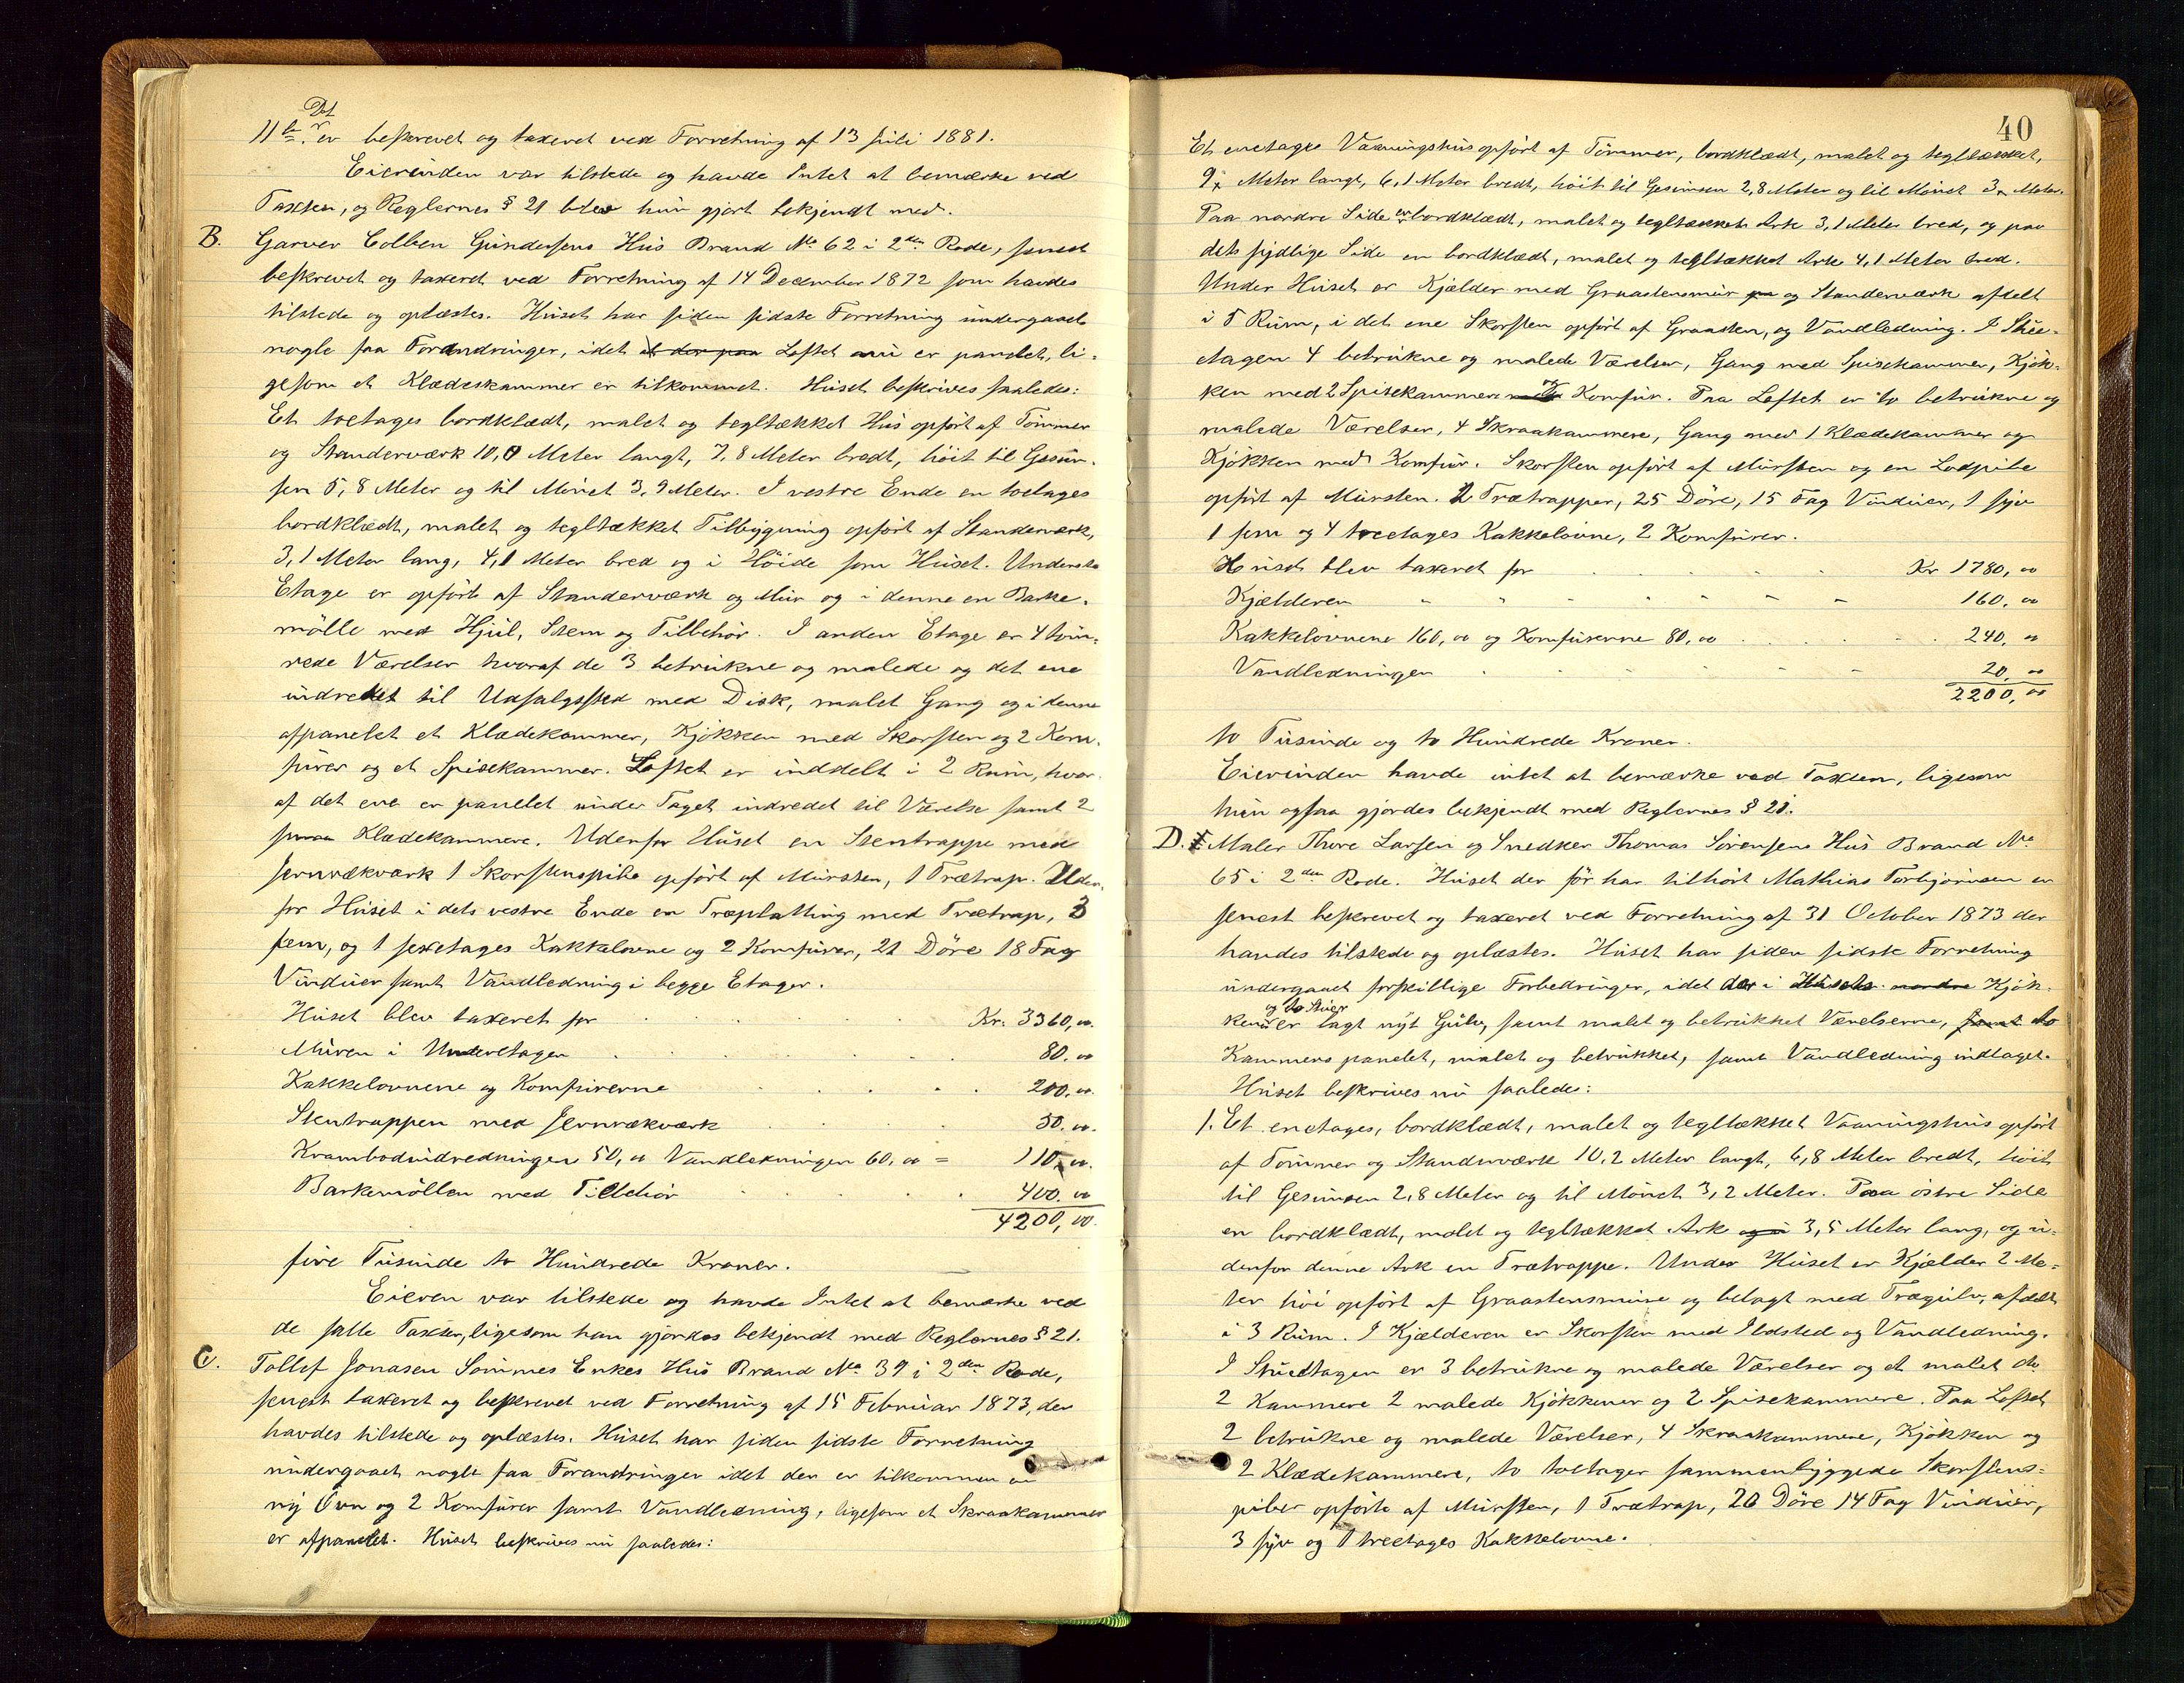 Det
11te er beskrevet og taxeret ved Forretning af 13 Juli 1881.
Eierinden var tilstede og havde Intet at bemærke ved
Taxten, og Reglernes § 21 blev hun gjort bekjendt med.
B. Garver Colben Gundersens Hus Brand No 62 i 2den Rode, senest
beskrevet og taxeret ved Forretning af 14 December 1872 som havdes
tilstede og oplæstes. Huset har siden sidste Forretning undergaaet
nogle faa Forandringer, idet at der paa Loftet nu er panelet, li-
gesom et Klædeskammer er tilkommet. Huset beskrives saaledes:
Et toetages bordklædt, malet og tegltækket Hus opført af Tømmer
og Standerværk 10,0 Meter langt, 7,8 Meter bredt, høit til Gesim-
sen 5,8 Meter og til Mønet 3,9 Meter. I vestre Ende en toetages
bordklædt, malet og tegltækket Tilbygning opført af Standerværk,
3,1 Meter lang, 4,1 Meter bred og i Høide som Huset. Underste
Etage er opført af Standerværk og Mur og i denne en Barke-
mølle med Hjul, Sten og Tilbehør. I anden Etage er 4 tøm-
rede Værelser hvoraf de 3 betrukne og malede og det ene
indredet til Udsalgssted med Disk, malet Gang og i denne
afpanelet et Klædekammer, Kjøkken med Skorsten og 2 Kom-
furer og et Spisekammer. Loftet er inddelt i 2 Rum, hvor-
af det ene er panelet under Taget indredet til Værelse samt 2
smaa Klædekammere. Udenfor Huset en Stentrappe med
Jernrækværk 1 Skorstenspibe opført af Mursten, 1 Trætrap. Uden-
for Huset i dets vestre Ende en Træplatting med Trætrap, 3
fem, og 1 sexetages Kakkelovne og 2 Komfurer, 21 Døre 18 Fag
Vinduer samt Vandledning i begge Etager.
Huset blev taxeret for Kr. 3360,00.
Muren i Underetagen 80.00
Kakkelovnene og Komfurerne 200.00.
Stentrappen med Jernrækværk 50.00.
Krambodindredningen 50,00 Vandledningen 60,00 = 110,00.
Barkemøllen med Tilbehør 400.00
4200,00.
fire Tusinde to Hundrede Kroner.
Eieren var tilstede og havde Intet at bemærke ved
de satte Taxter, ligesom han gjordes bekjendt med Reglernes § 21.
C. Tollef Jonasen Sømmes Enkes Hus Brand No 39 i 2den Rode,
senest taxeret og beskrevet ved Forretning af 15 Februar 1873, der
havdes tilstede og oplæstes. Huset har siden sidste Forretning
undergaaet nogle faa Forandringer idet der er tilkommen en
ny Ovn og 2 Komfurer samt Vandledning, ligesom et Skraakammer
er afpanelet. Huset beskrives nu saaledes:
40
Et enetages Vaaningshus opført af Tømmer, bordklædt, malet og tegltækket,
9,2 Meter langt, 6,1 Meter bredt, høit til Gesimsen 2,8 Meter og til Mønet 3,2 Meter.
Paa nordre Side en bordklædt, malet og tegltækket Ark 3,1 Meter bred, og paa
dets sydlige Side en bordklædt, malet og tegltækket Ark 4,1 Meter bred.
Under Huset er Kjælder med Graastensmur pa og Standerværk afdelt
i 5 Rum, i det ene Skorsten opført af Graasten, og Vandledning. I Stue-
etagen 4 betrukne og malede Værelser, Gang med Spisekammer, Kjøk-
ken med 2 Spisekammere og Komfur. Paa Loftet er to betrukne og
malede Værelser, 4 Skraakammere, Gang med 1 Klædekammer og
Kjøkken med Komfur. Skorsten opført af Mursten og en Lodpibe
opført af Mursten. 2 Trætrapper, 25 Døre, 15 Fag Vinduer, 1 syv
1 fem og 4 treetages Kakkelovne, 2 Komfurer.
Huset blev taxeret for Kr 1780,00
Kjælderen 160,00
Kakkelovnene 160,00 og Komfurerne 80,00 240,00
Vandledningen 20,00
2200,00
to Tusinde og to Hundrede Kroner.
Eierinden havde intet at bemærke ved Taxten, ligesom
hun ogsaa gjordes bekjendt med Reglernes § 21.
D. Maler Thore Larsen og Snedker Thomas Sørensens Hus Brand No
65 i 2den Rode. Huset der før har tilhørt Mathias Torbjørnsen er
senest beskrevet og taxeret ved Forretning af 31 October 1873 der
havdes tilstede og oplæstes. Huset har siden sidste Forretning
undergaaet forskillige Forbedringer, idet der i Husets nordre Kjøk-
og to Stuer
kener er lagt nyt Gulv, samt malet og betrukket Værelserne, samt to
Kammers panelet, malet og betrukket, samt Vandledning indlaget.
Huset beskrives nu saaledes:
1. Et enetages, bordklædt, malet og tegltækket Vaaningshus opført
af Tømmer og Standerværk 10,2 Meter langt, 6,8 Meter bredt, høit
til Gesimsen 2,8 Meter og til Mønet 3,2 Meter. Paa østre Side
en bordklædt, malet og tegltækket Ark og i 3,5 Meter lang, og u-
denfor denne Ark en Trætrappe. Under Huset er Kjælder 2 Me-
ter høi opført af Graastensmure og belagt med Trægulv, afdelt
i 3 Rum. I Kjælderen er Skorsten med Ildsted og Vandledning.
I Stueetagen er 3 betrukne og malede Værelser og et malet do
2 Kammere 2 malede Kjøkkener og 2 Spisekammere. Paa Loftet
2 betrukne og malede Værelser, 4 Skraakammere, Kjøkken og
2 Klædekammere, to toetages sammenbyggede Skorstens-
piber opførte af Mursten, 1 Trætrap, 20 Døre 14 Fag Vinduer,
3 syv og 1 treetages Kakkelovne.